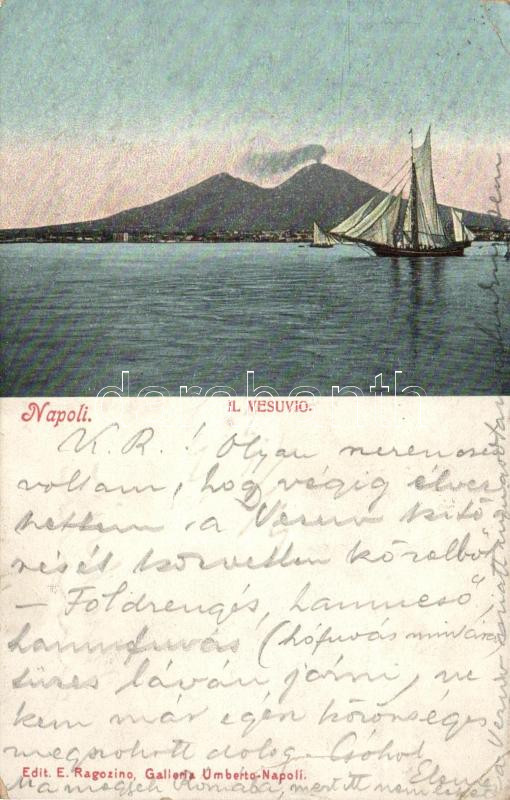 darabanth.com
Napoli.
IL VESUVIO.
K. R. ! Olyan szerencsés
voltam, hogy végig élvez
hettem a Vezuv kitö
rését közvetlen közelből
– Földrengés, hamueső,
hamufuvás (hófuvás mintára
tüzes láván járni, ne
kem már egész közönséges
megszokott dolog. Csókol
Edit. E. Ragozino, Galleria Umberto-Napoli.
mert itt nem
a Vezuv